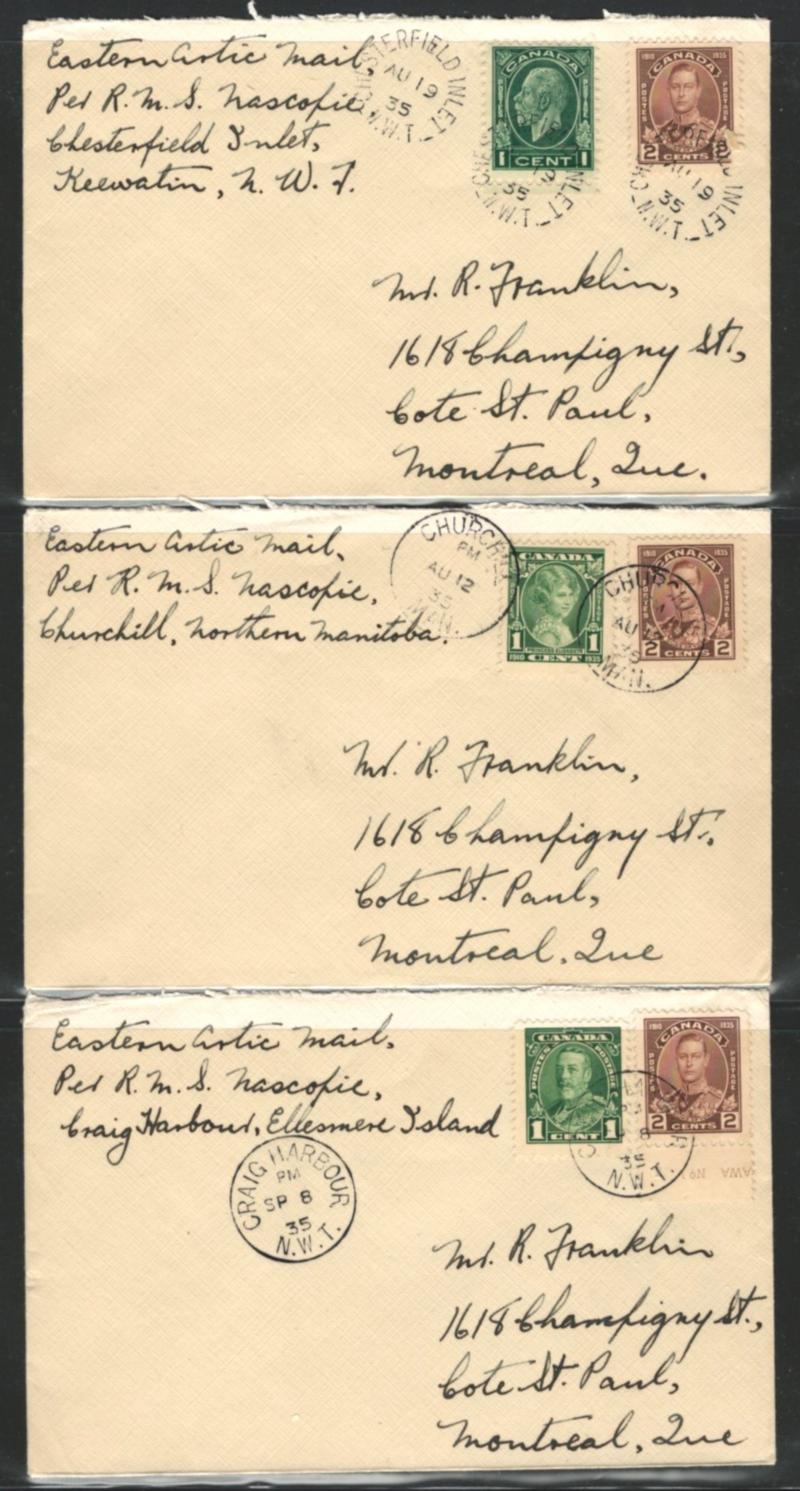 Eastern Artic Mail,
Per R.M.S. Nascopie
Chesterfield Inlet,
Keewatin, N.W.T.
CHESTERFIELD INLET
AU 19
35
N.W.T.
CANADA
1 CENT 1
CHESTERFIELD INLET
35
N.W.T.
1910 1935
CANADA
POSTES POSTAGE
2 CENTS 2
AU 19
35
N.W.T.
INLET
Mr. R. Franklin,
1618 Champigny St.,
Cote St. Paul,
Montreal, Que.
Eastern Artic Mail,
Per R.M.S. Nascopie,
Churchill, Northern Manitoba.
CHURCHILL
PM
AU 12
35
MAN.
CANADA
1 1
PRINCESS ELIZABETH
1910 CENT 1935
1910 1935
CANADA
POSTAGE
2 CENTS 2
CHURCHILL
AU 12
35
MAN.
Mr. R. Franklin,
1618 Champigny St.,
Cote St. Paul,
Montreal, Que
Eastern Artic Mail,
Per R.M.S. Nascopie,
Craig Harbour, Ellesmere Island
CRAIG HARBOUR
PM
SP 8
35
N.W.T.
CANADA
POSTES POSTAGE
1 CENT 1
1910 1935
CANADA
POSTES POSTAGE
2 CENTS 2
8
35
N.W.T.
AWA No
Mr. R. Franklin
1618 Champigny St.,
Cote St. Paul,
Montreal, Que